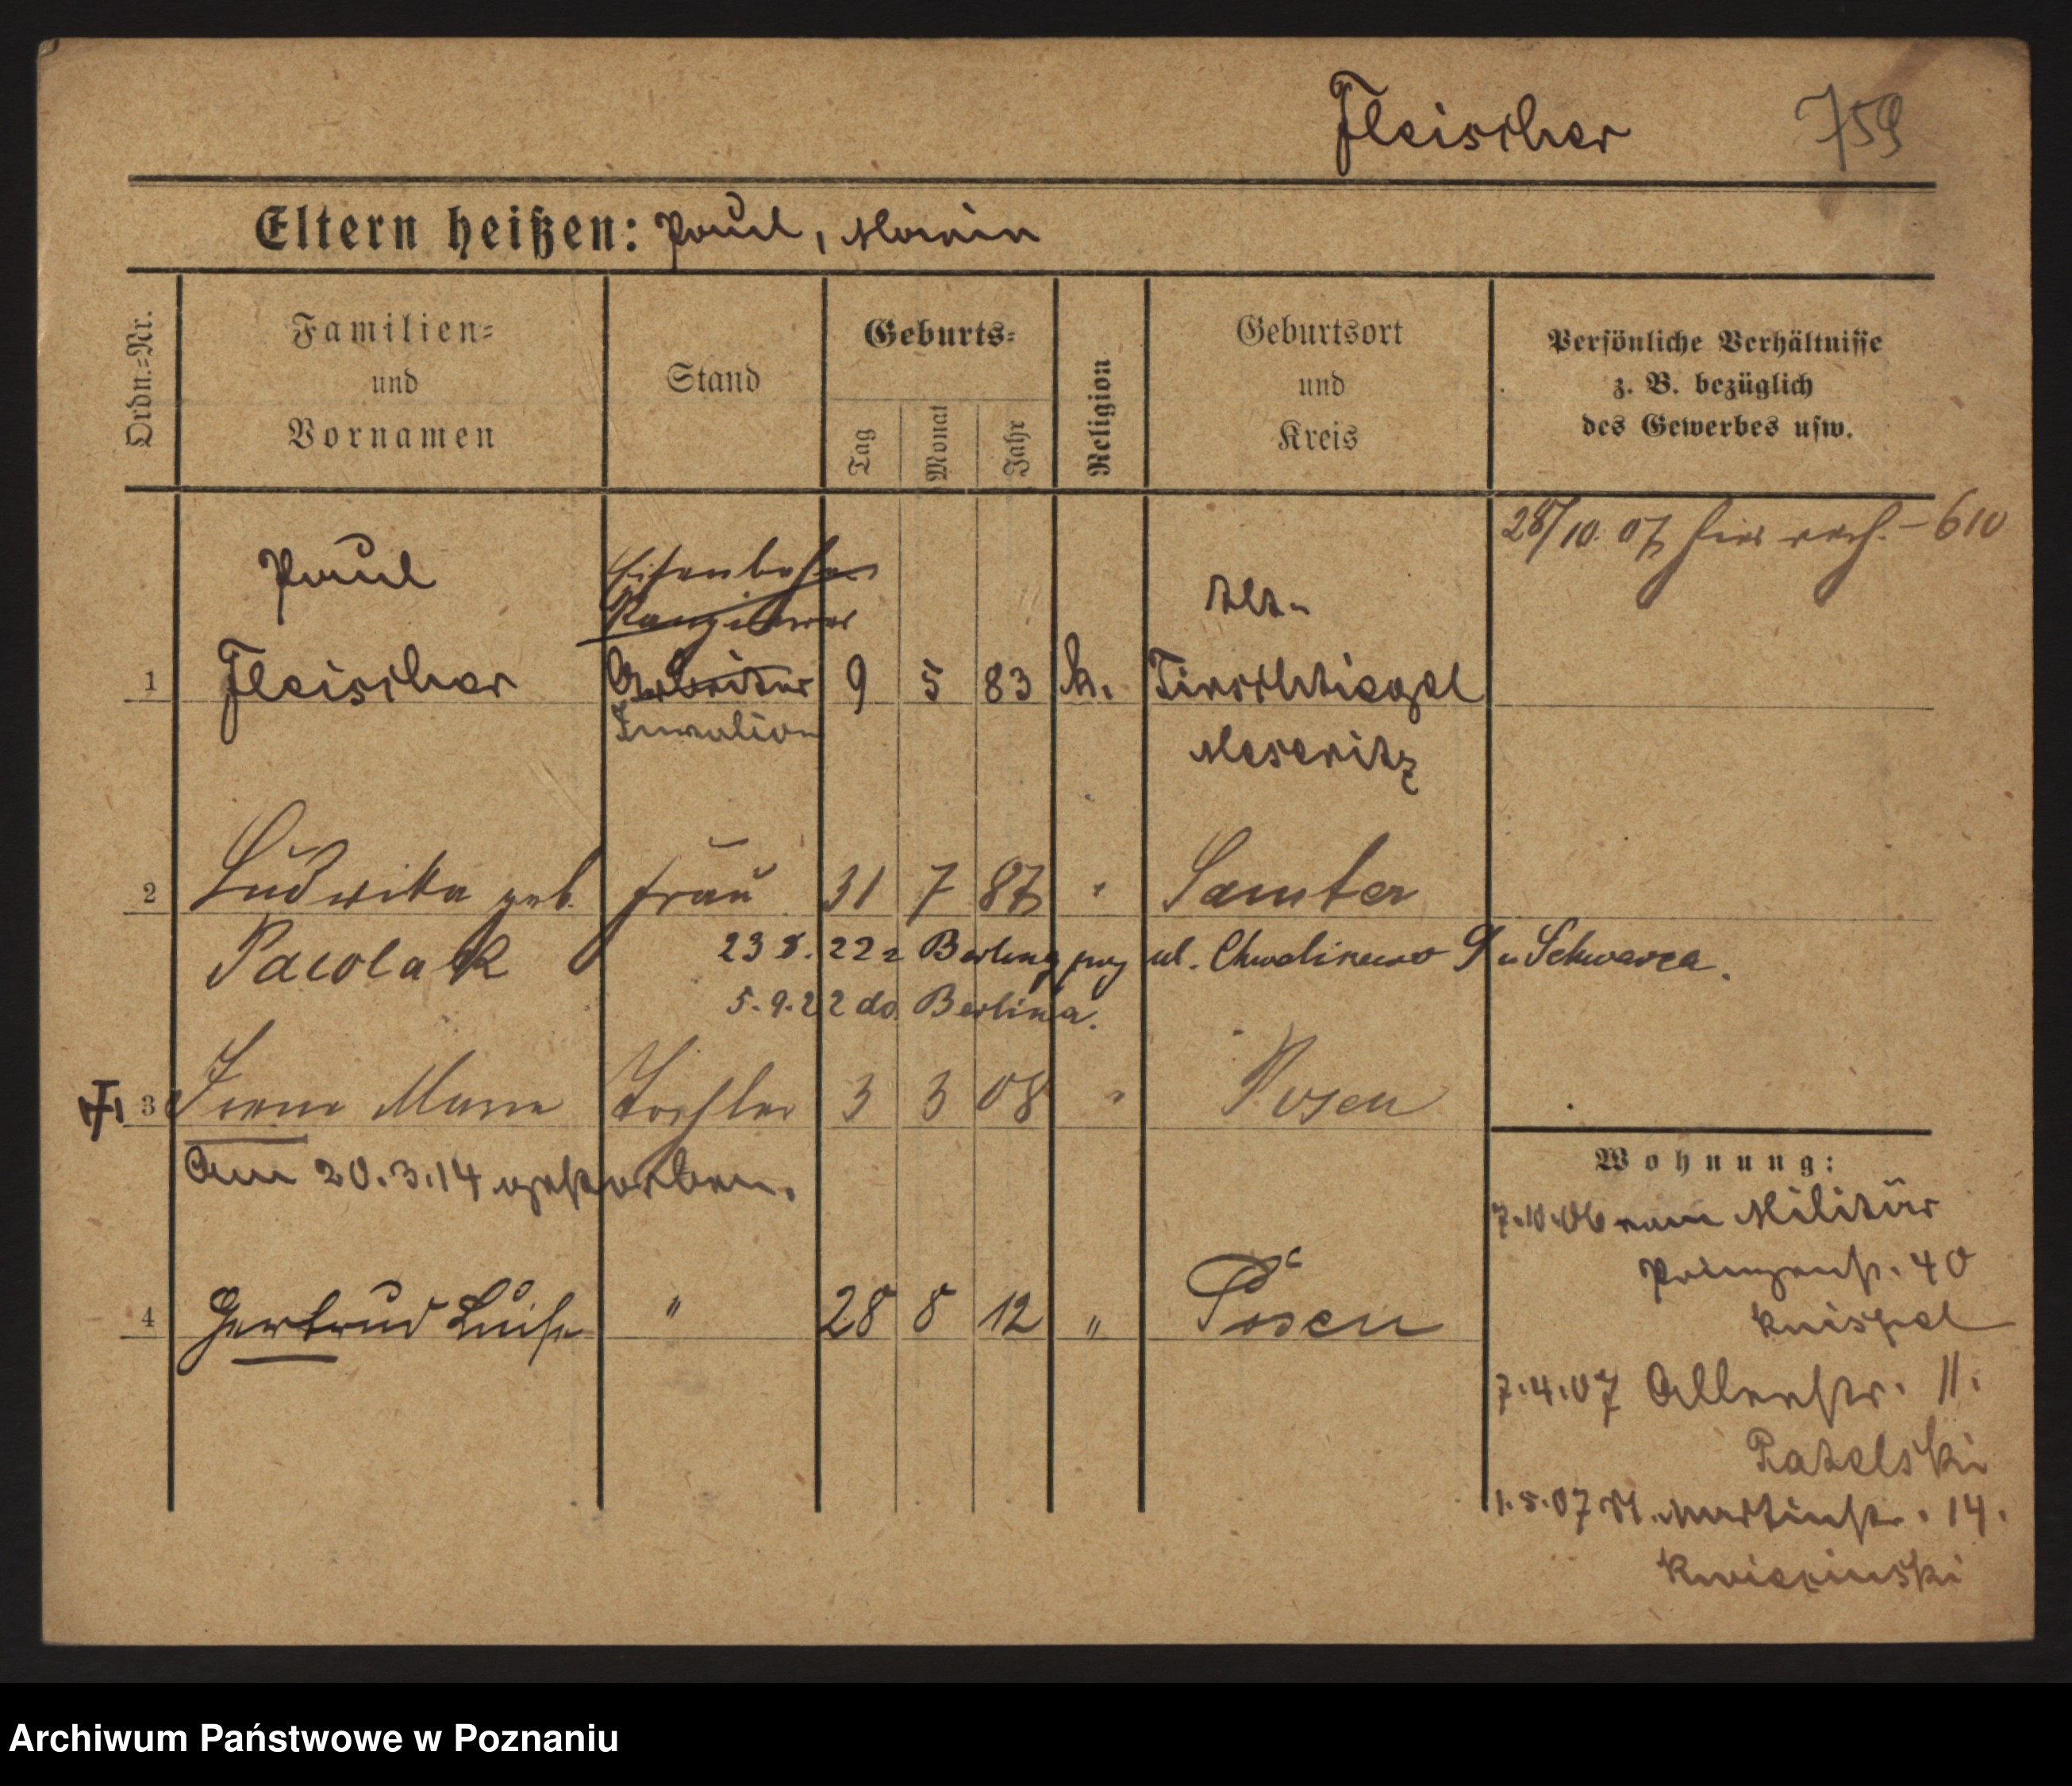 Fleischer 759
Eltern heißen: Paul, Marie
Ordn.=Nr.
Familien=
und
Vornamen
Stand
Geburts=
Tag
Monat
Jahr
Religion
Geburtsort
und
Kreis
Persönliche Verhältnisse
z. B. bezüglich
des Gewerbes usw.
28/10. 07 – 610
Paul
Eisenbahn
Rangierer
Alt-
1 Fleischer Arbeiter 9 5 83 k. Tirschtiegel
Invalide
Meseritz
2 Ludwika geb. Frau 31 7 87 " Samter
Pacolak 23 8. 22 z Berlina przy ul. Chwaliszewo 9 u Schwarca.
5.9.22 do Berlina.
3 Irene Marie Tochter 3 3 08 " Posen
Am 20.3.14 gestorben.
4 Gertrud Luise " 28 8 12 " Posen
Wohnung:
7.10.06 vom Militär
Prinzenstr. 40
Knispel
7.4.07 Allerstr. 11.
Ratelski
1.5.07 St. Martinstr. 14.
Kwiecinski
Archiwum Państwowe w Poznaniu